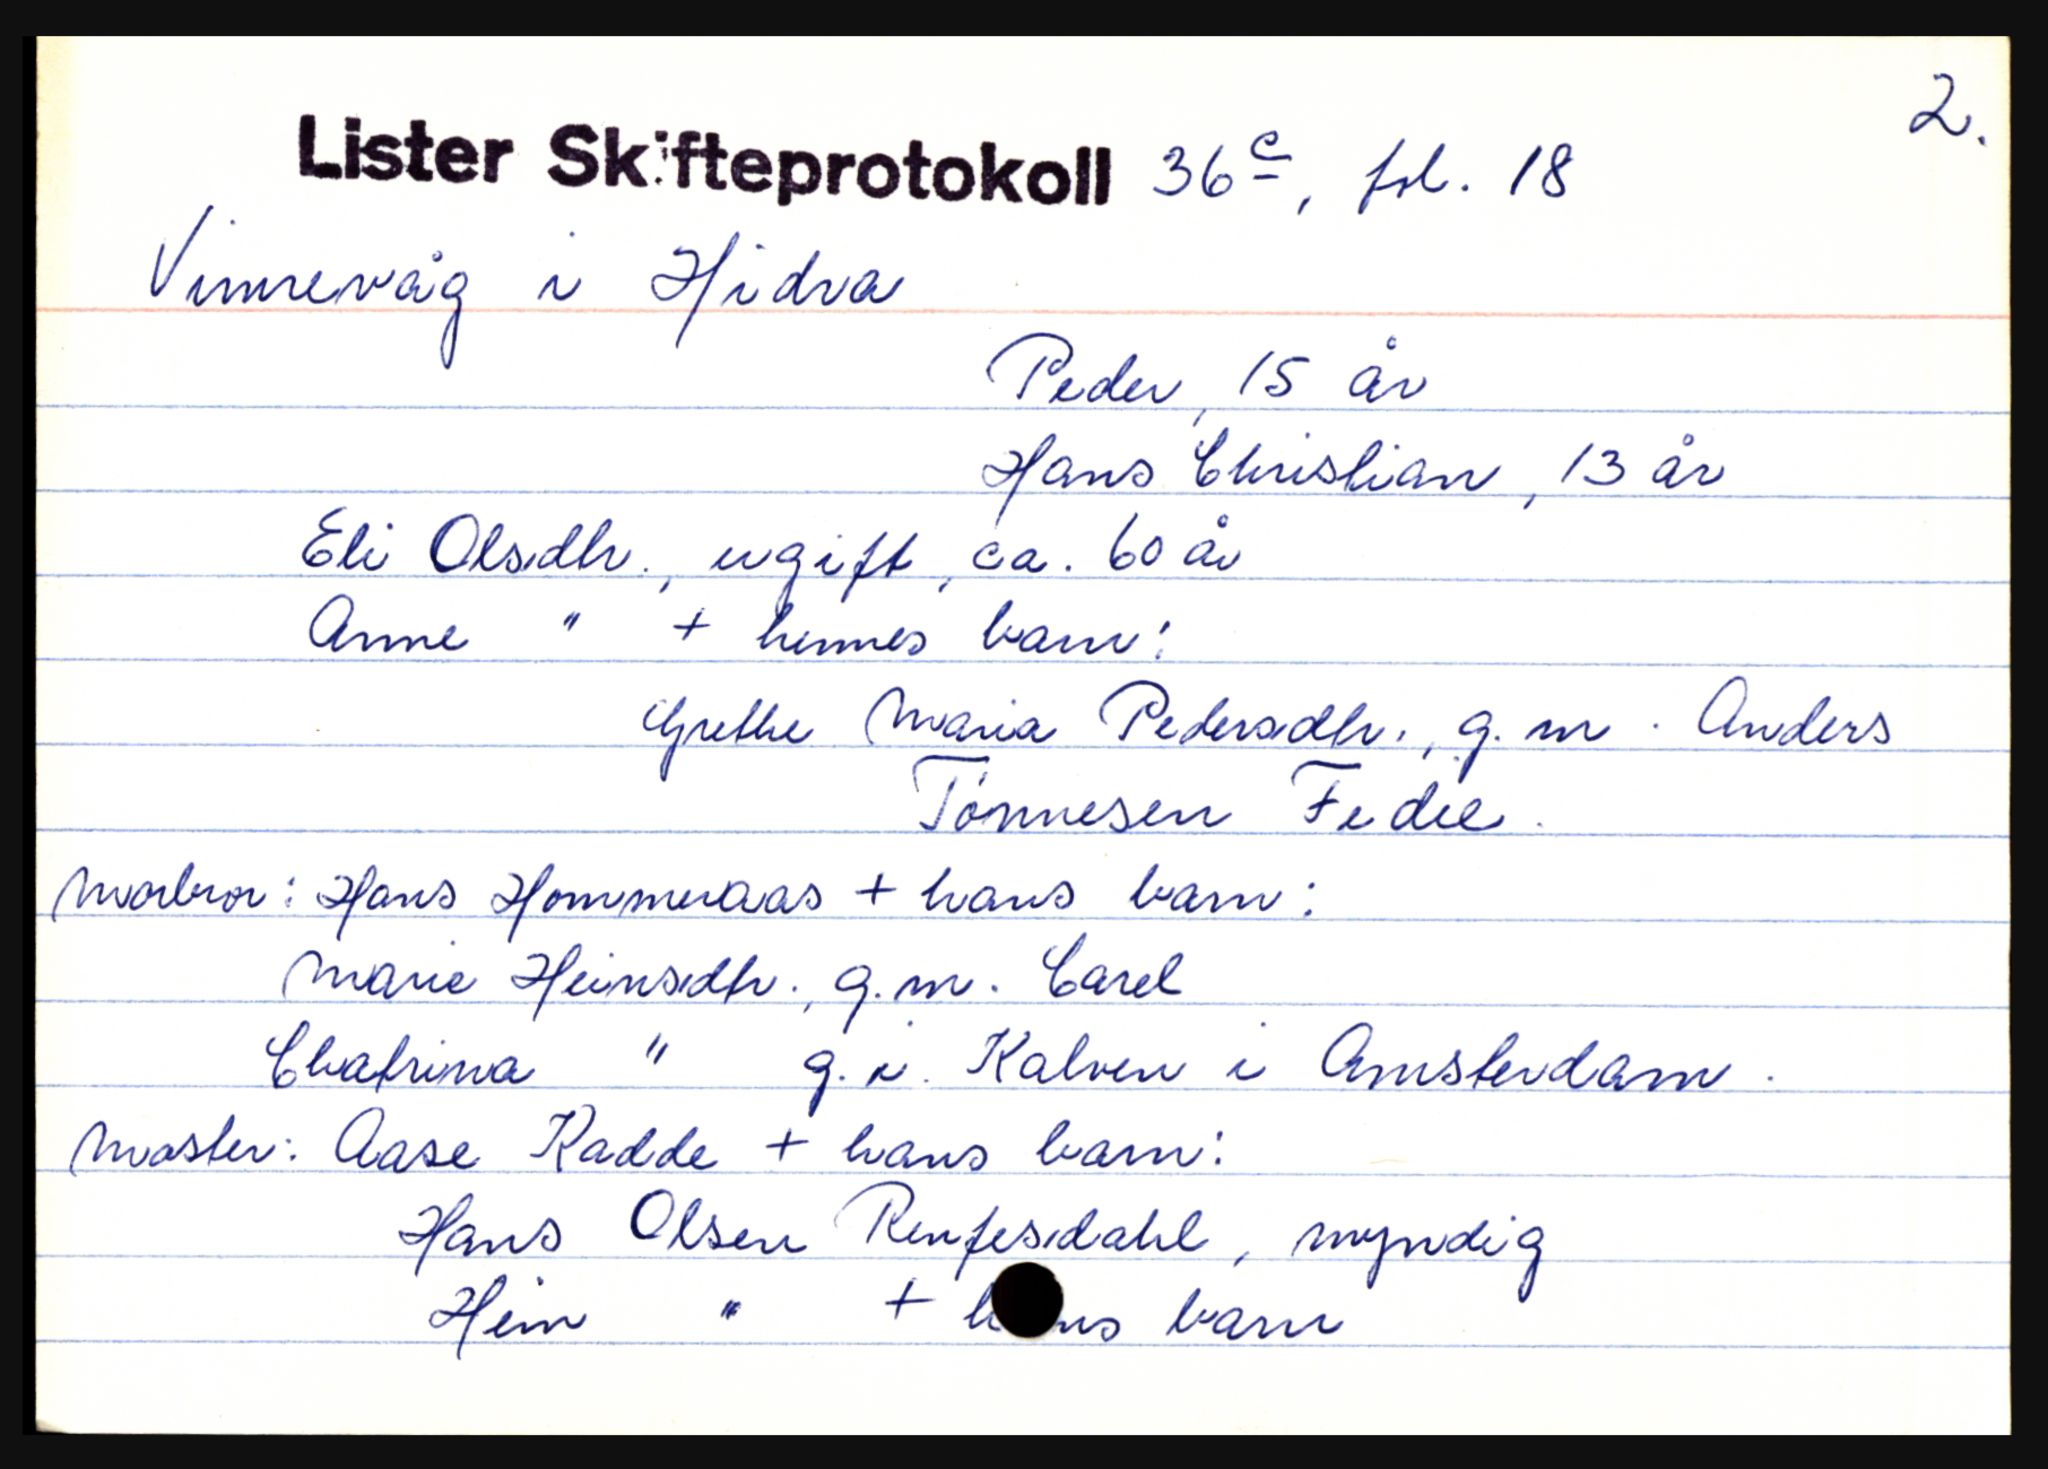 2.
Lister Skifteprotokoll 36c, fol. 18
Vinnevåg i Hidra
Peder, 15 år
Hans Christian, 13 år
Eli Olsdtr., ugift, ca. 60 år
Anne " + hennes barn:
Grethe Maria Pedersdtr., g. m. Anders
Tønnesen Fedde.
Morbror: Hans Hommeraas + hans barn:
Marie Heinsdtr., g. m. Carel
Chatrina " g. i. Kalven i Amsterdam.
Moster: Aase Kadde + hans barn:
Hans Olsen Renfesdahl, myndig
Hein " + hans barn